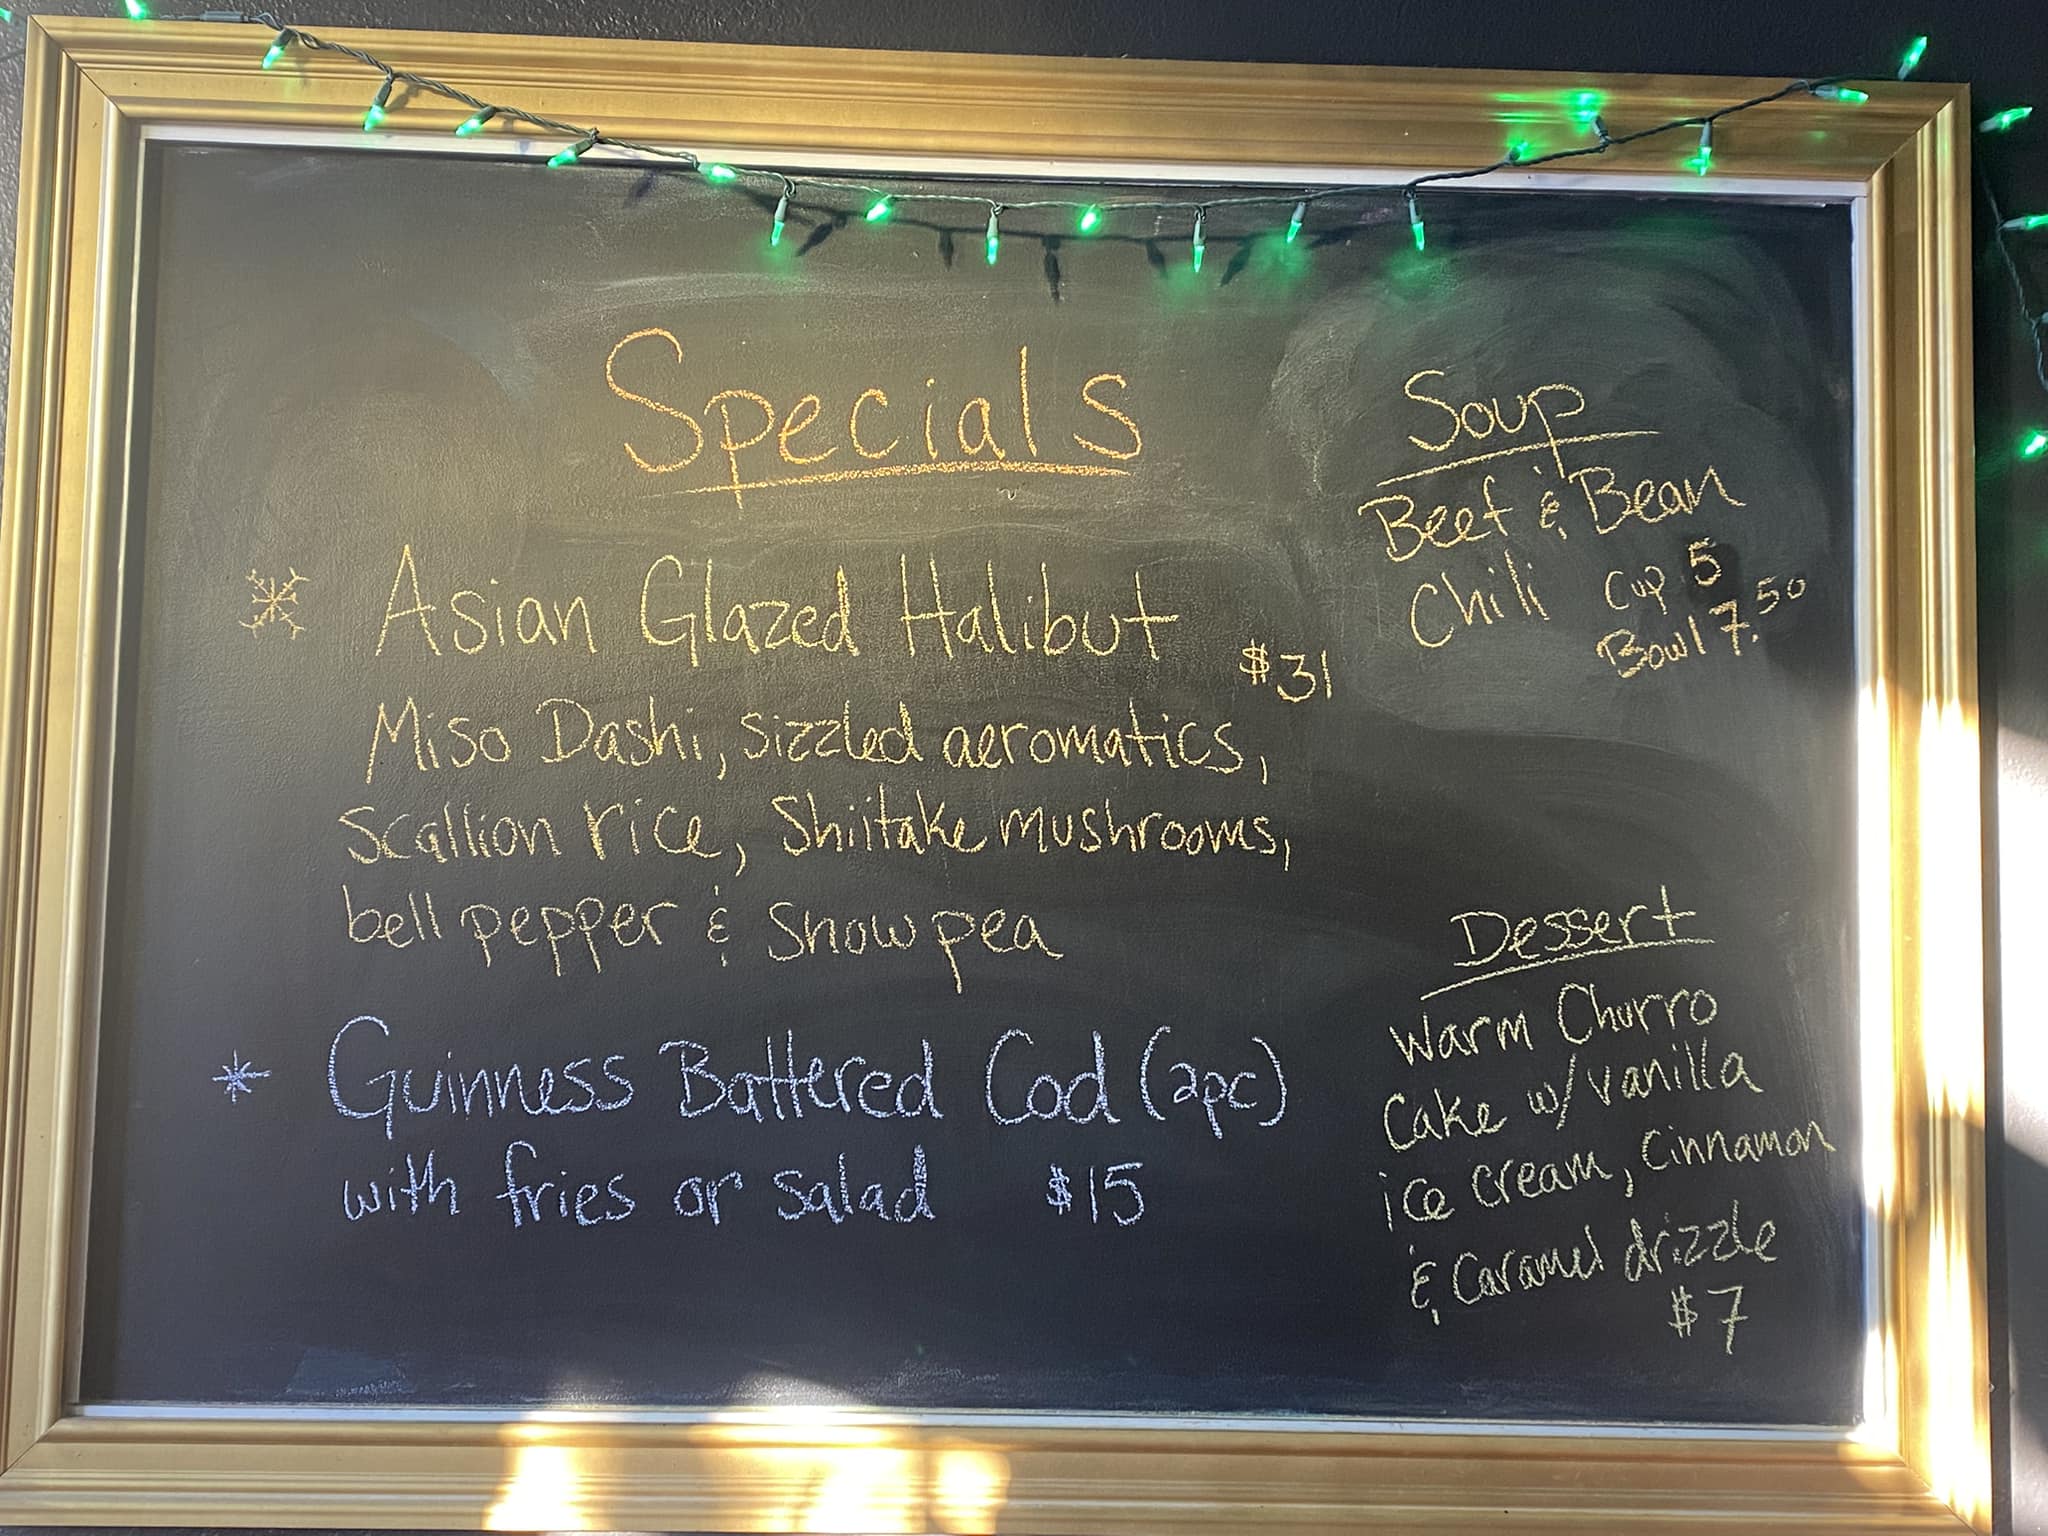 Specials
* Asian Glazed Halibut
$31
Miso Dashi, sizzled aeromatics,
Scallion rice, Shiitake mushrooms,
bell pepper & Snow pea
* Guinness Battered Cod (2pc)
with fries or salad $15
Soup
Beef & Bean
Chili Cup 5
Bowl 7.50
Dessert
Warm Churro
Cake w/ vanilla
ice cream, Cinnamon
& Caramel drizzle
$7